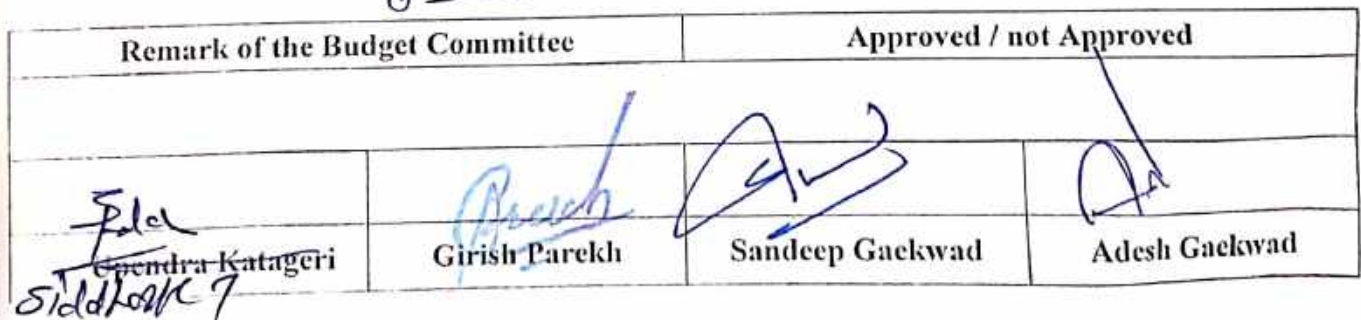 Remark of the Budget Committee Approved / not Approved
Upendra Katageri Girish Parekh Sandeep Gaekwad Adesh Gaekwad